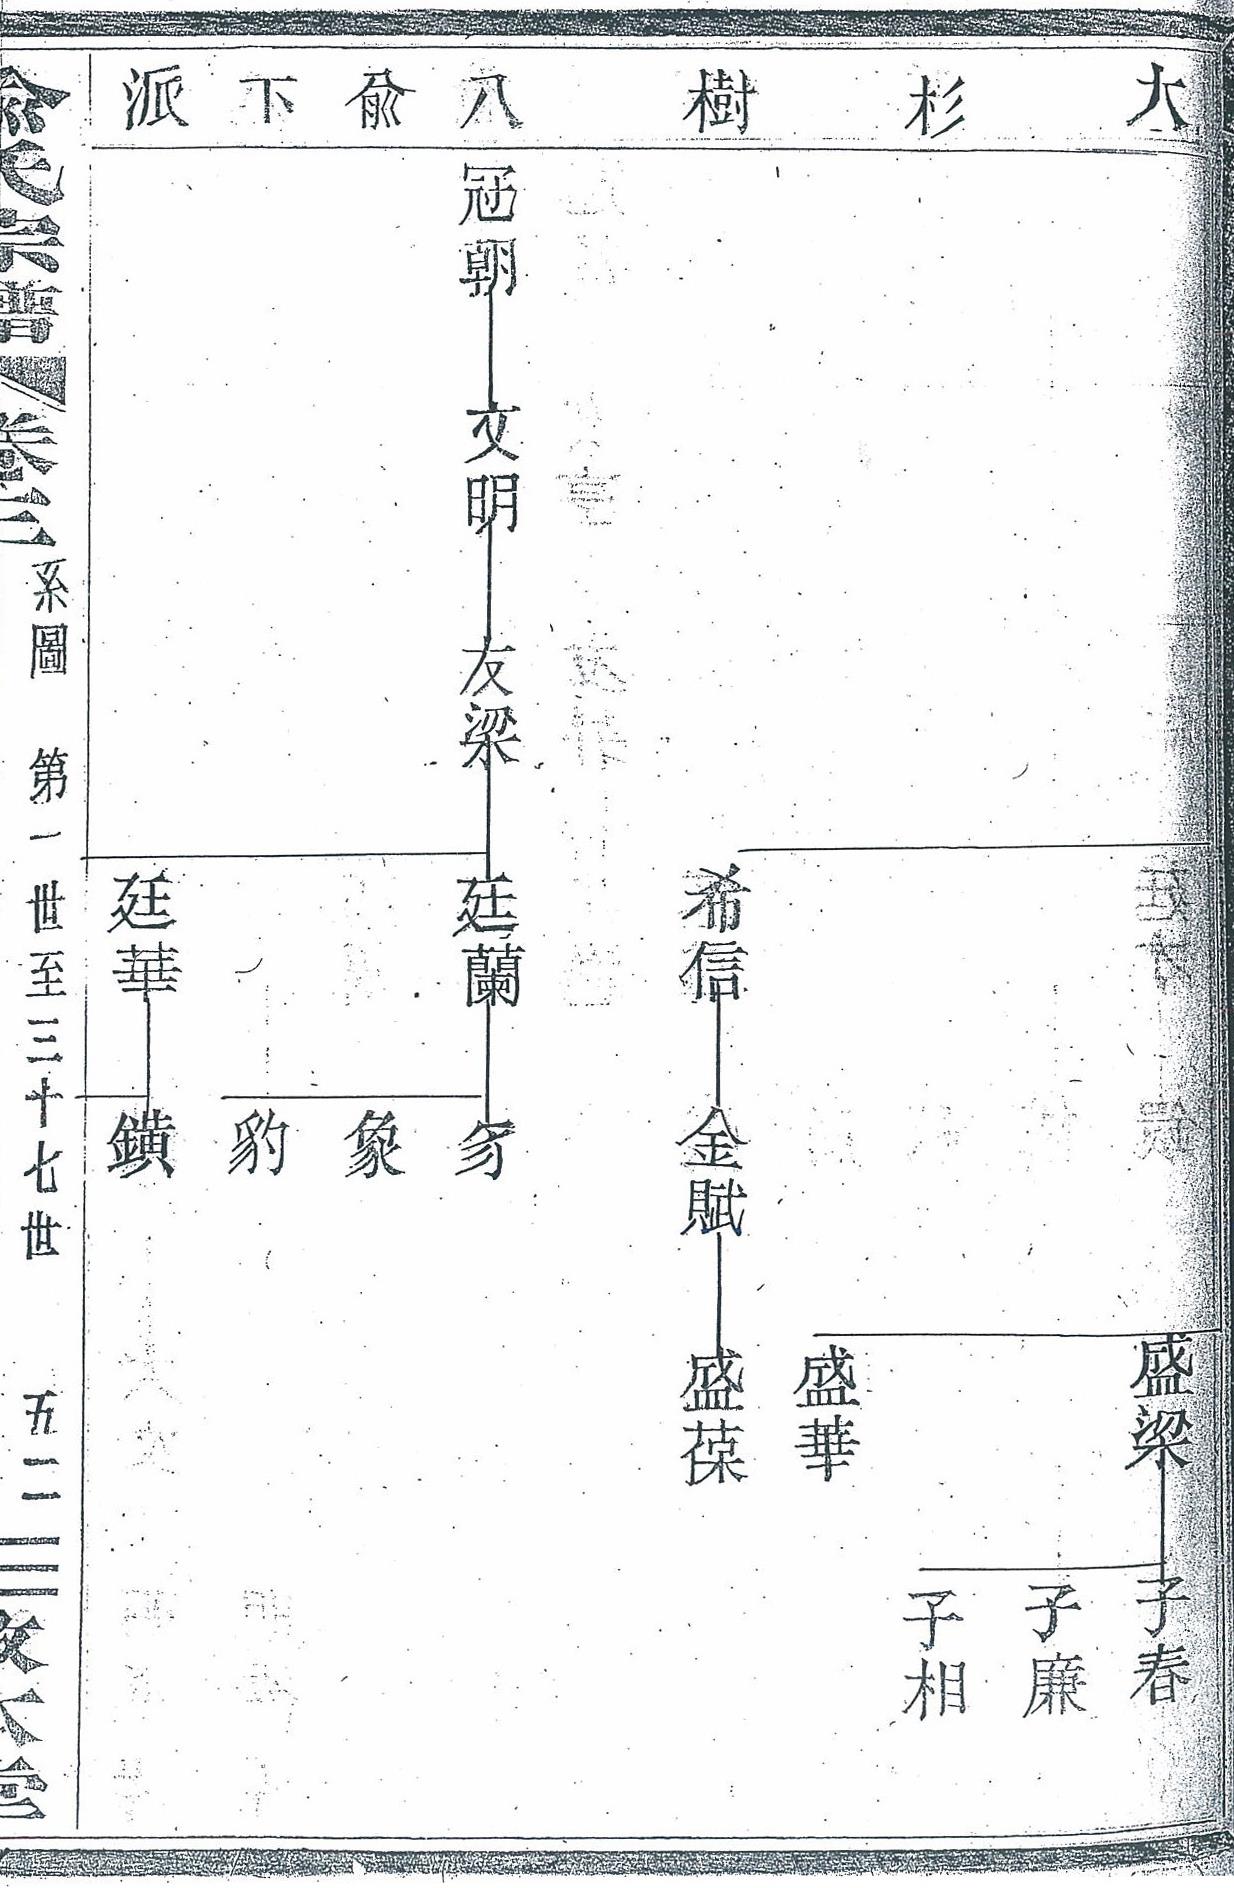 大杉樹八俞下派
盛梁
子春
子廉
子相
盛華
希信
金賦
盛葆
冠朝
文明
友梁
廷蘭
豸
象
豹
廷華
鐄
俞氏宗譜 卷三 系圖 第一世至三十七世 五二 敦本堂